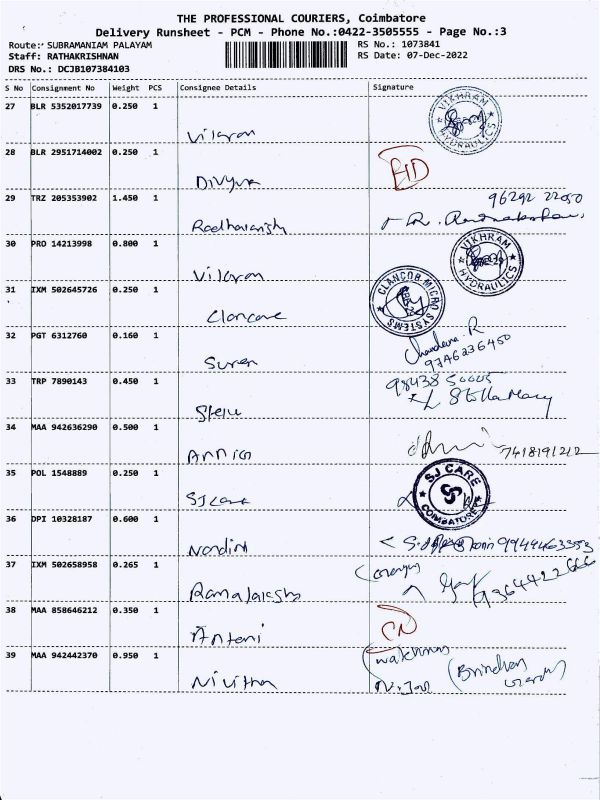 THE PROFESSIONAL COURIERS, Coimbatore
Delivery Runsheet - PCM - Phone No.:0422-3505555 - Page No.:3
Route: SUBRAMANIAM PALAYAM RS No.: 1073841
Staff: RATHAKRISHNAN RS Date: 07-Dec-2022
DRS No.: DCJB107384103
S No Consignment No Weight PCS Consignee Details Signature
27 BLR 5352017739 0.250 1
VIKHRAM HYDRAULICS
28 BLR 2951714002 0.250 1
Divya
29 TRZ 205353902 1.450 1
96292 22050
30 PRO 14213998 0.800 1
VIKHRAM HYDRAULICS
31 IXM 502645726 0.250 1
CLANCOR MICRO SYSTEMS
32 PGT 6312760 0.160 1
Suren
Chandana. R
9746236450
33 TRP 7890143 0.450 1
Stella Mary
34 MAA 942636290 0.500 1
7418191212
35 POL 1548889 0.250 1
SJ CARE COIMBATORE
36 DPI 10328187 0.600 1
9949463353
37 IXM 502658958 0.265 1
9364422666
38 MAA 858646212 0.350 1
Antoni
39 MAA 942442370 0.950 1
Nivitha